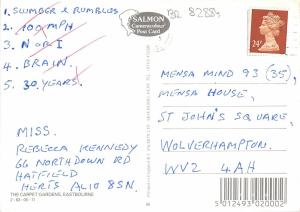 BR 8288
SALMON
Cameracolour
Post Card
24P
1. SWMBGR & RUMBLOS
2. 100 MPH
3. N OR I
4. BRAIN.
5. 30 YEARS.
MISS.
REBECCA KENNEDY
66 NORTHDOWN RD
HATFIELD
HERTS AL10 8SN.
MENSA MIND 93 (35),
MENSA HOUSE,
ST JOHN'S SQUARE,
WOLVERHAMPTON.
WV2 4AH
THE CARPET GARDENS, EASTBOURNE
2-63-05-11
5 012493 020002